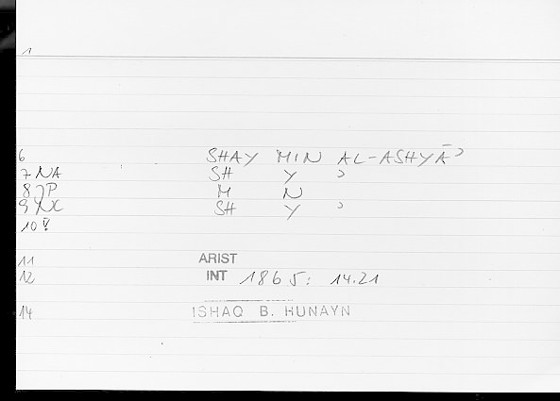 1
6 SHAY MIN AL-ASHYĀʾ
7 NA SH Y ʾ
8 JP M N
9 NC SH Y ʾ
10
11 ARIST
12 INT 1865: 14.21
14 ISHAQ B. HUNAYN